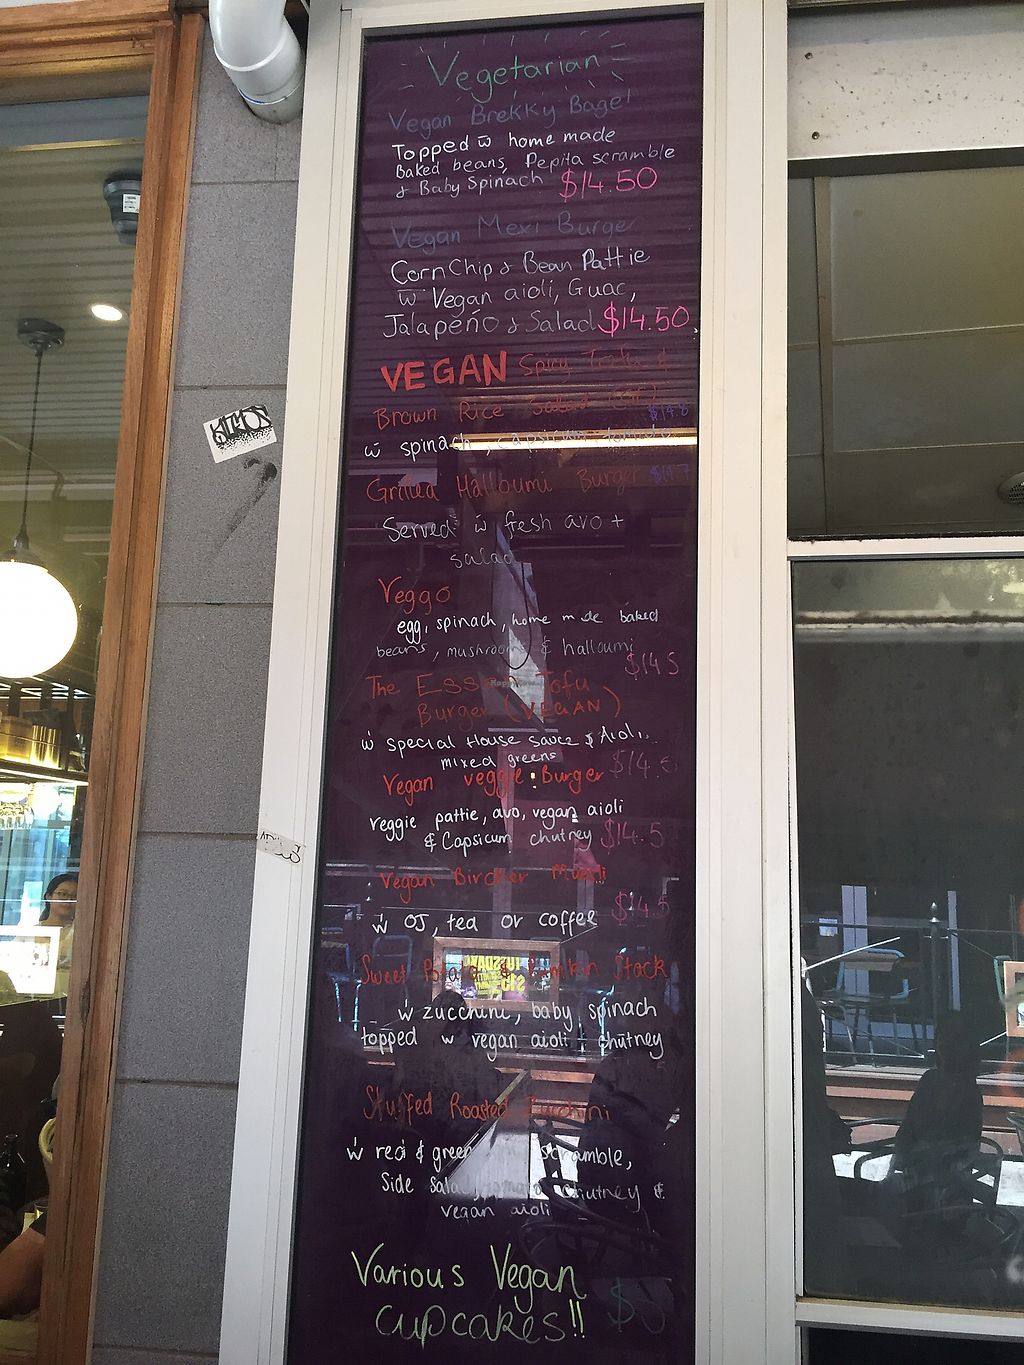 Vegetarian
Vegan Brekky Bagel
Topped w̄ home made
Baked beans, Pepita scramble
& Baby Spinach $14.50
Vegan Mexi Burger
Corn Chip & Bean Pattie
w̄ Vegan aioli, Guac,
Jalapeño & Salad $14.50
VEGAN Spicy Tofu &
Brown Rice Salad
w̄ spinach, capsicum
Grilled Halloumi Burger
Served w̄ fresh avo +
salad
Veggo
egg, spinach, home made baked
beans, mushrooms & halloumi
$14.5
The Tofu
Burger (VEGAN)
w̄ special House sauce & Aioli,
mixed greens
Vegan veggie Burger
veggie pattie, avo, vegan aioli
& Capsicum chutney $14.5
Vegan Bircher Muesli
$14.5
w̄ OJ, tea or coffee
Sweet Potato & Pumkin Stack
w̄ zucchini, baby spinach
topped w vegan aioli + chutney
Stuffed Roasted Zucchini
w̄ red & green scramble,
Side Salad, chutney &
vegan aioli
Various Vegan
cupcakes!!